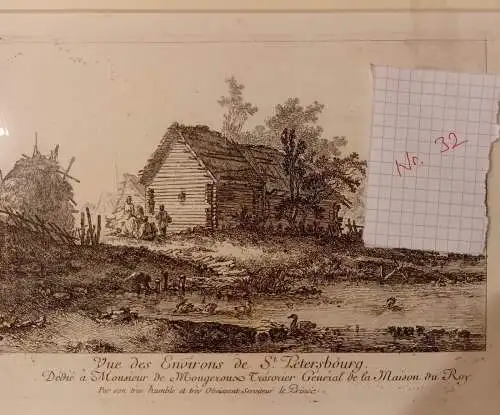 No. 32
Vue des Environs de St. Petersbourg.
Dedié à Monsieur de Mougeroux Trésorier Général de la Maison du Roy
Par son très humble et très Obeissant Serviteur le Prince